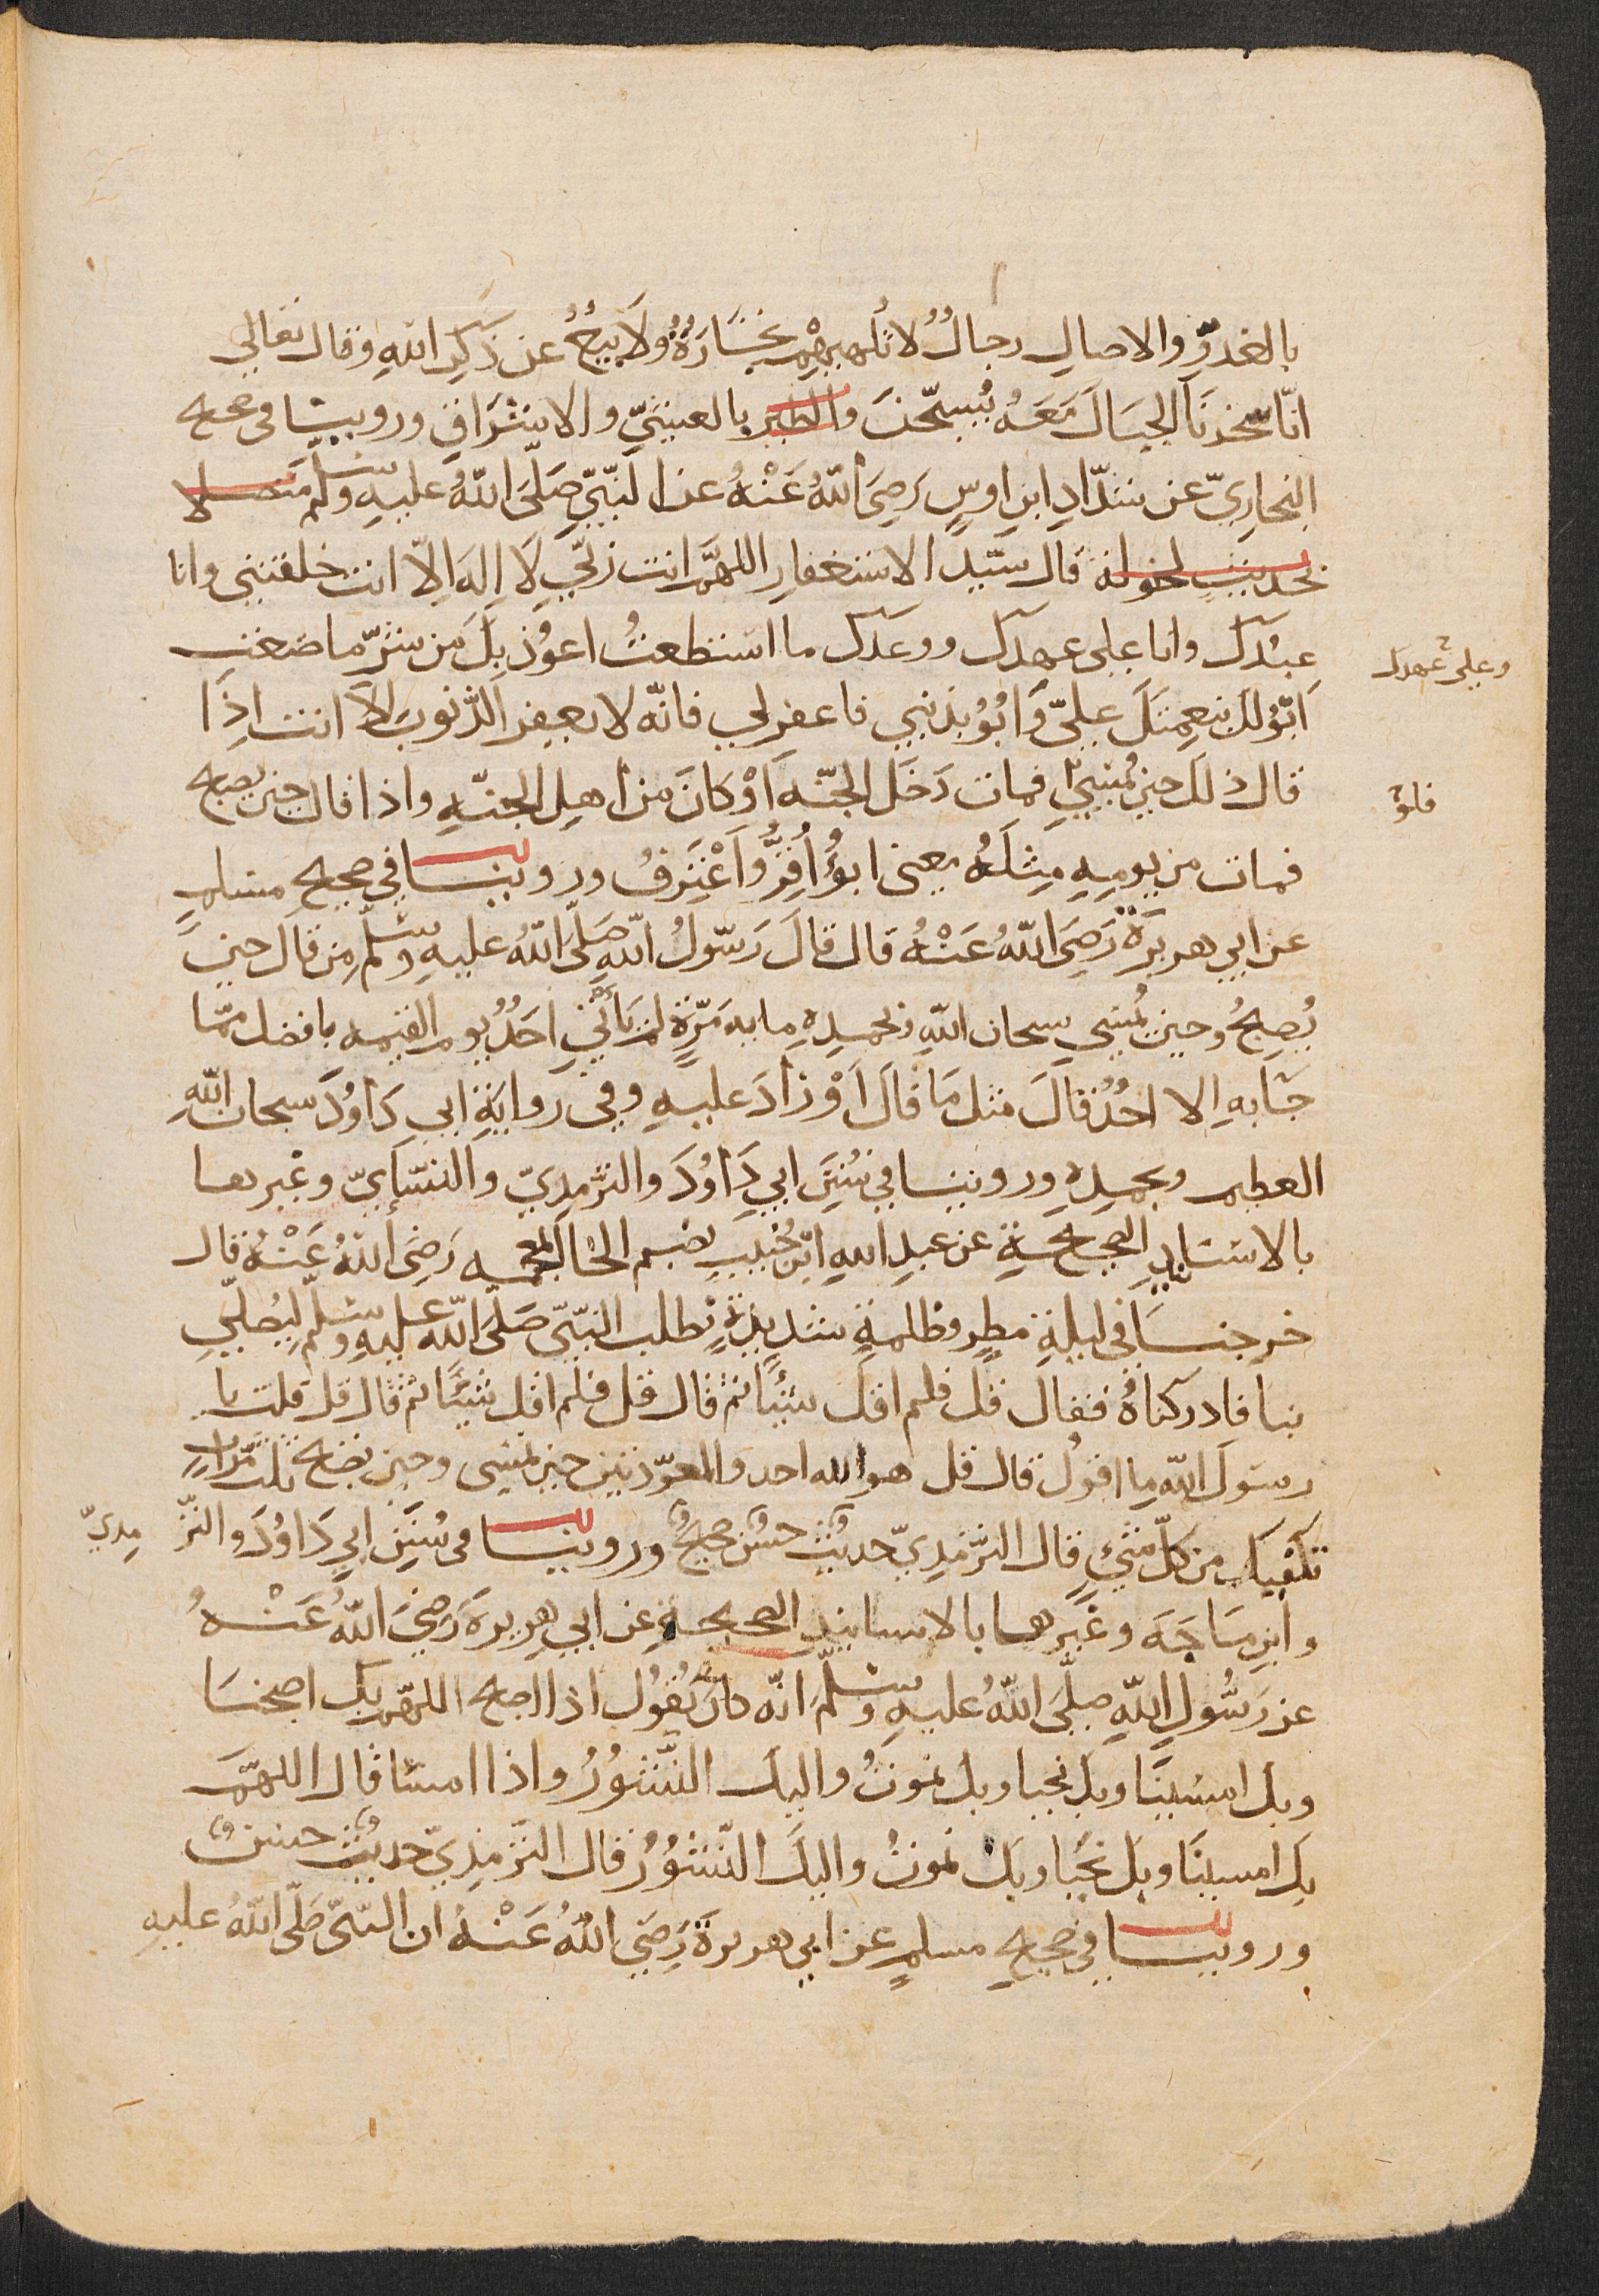 بالغدوّ والاصال رجالٌ لا تُلهيهِمْ تجَارَةٌ ولَا بَيعٌ عن ذكرِ اللهِ وقال تعالى
انّا سخّرنَا الجِبَالَ مَعَهُ يُسبّحنَ والطير بالعشيّ والاشرَاقِ وروينا في صحيح
البخاريّ عن شدّادِ ابنِ اوسٍ رَضِىَ اللهُ عَنْهُ عن النّبيّ صَلّىَ اللهُ عليهِ وسلّم
قال سَيّد الاستغفارِ اللهمَّ انت ربّي لَا اِلهَ اِلاّ انت خلقتنى وانا
عبدُكَ وانا على عهدك ووعدك ما استطعتُ اعوُذ بِكَ من شرّ ما صنعت
ابُوْلك بنعمتكَ عليّ وَابُوْ بذنبي فاغفرلي فانّه لا يغفِر الذّنوبَ اِلاّ انت اِذَا
قال ذلك حين يُمسي فمات دَخَل الجنّةَ اَوْ كانَ من اهلِ الجنّةِ واذا قال حين يصبح
فمات من يومِهِ مِثلَهُ يعنى ابوْءُ اُقِرُّ وَاَعْتَرِفُ وروينا في صحيحِ مسلمٍ
عن ابي هريرَةَ رَضِىَ اللهُ عَنْهُ قال قالَ رَسُولُ اللهِ صَلّىَ اللهُ عليهِ وسلّم من قال حين
يُصبِحُ وحين يُمسي سبحان اللهِ وبحمدِهِ مايه مَرّةٍ لم يَأتِ احَدٌ يوم القيمه بافضل ممّا
جَابِهِ اِلا احَدٌ قالَ مثل مَا قال اَوْ زادَ عليهِ وفي روايَةِ ابي دَاوُدَ سبحان اللهِ
العظيم وبحمدِهِ وروينا في سُنَنِ ابي دَاوُدَ والترْمِذِيّ والنّسَآيّ وغيرها
بالاسَانِيدِ الصحيحةِ عن عبدِ اللهِ ابْنِ خُبيبٍ بضم الخا المعجمه رَضِىَ اللهُ عَنْهُ قال
خرجنَا في ليلةِ مطرٍ وظلمةٍ شديدةٍ نطلب النّبيّ صَلّىَ اللهُ عليهِ وسلّم ليُصلّي
بنا فادركناهُ فقال قل فلم اقل شيًا ثم قال قل فلم اقل شيًا ثم قال قل قلت يا
رسولَ اللهِ ما اقولُ قال قل هو الله احد والمعوّذتين حين تمسى وحين تصبح ثلث مرّاتٍ
تكفيك من كلّ شيءٍ قال الترْمذِيّ حديثٌ حسنٌ صحيحٌ وروينا في سُنَنِ ابي دَاوُدَ والترْ مِذيّ
وابن مَاجَهَ وغيرها بالاسانيدِ الصحيحةِ عن ابي هريرةَ رَضِيَ اللهُ عَنْهُ
عن رَسُولِ اللهِ صلّىَ اللهُ عليهِ وسلّم انّه كانَ يقولُ اذا اصبح اللهمّ بك اصبحنا
وبك امسَينَا وبك نحيا وبك نموتُ واليك النّشُورُ واذا امسَا قال اللهمّ
بك امسينَا وبك نَحيَا وبك نموتُ واليكَ النّشُوُرُ قال الترْمذِيّ حديثٌ حسنٌ
وروينا في صحيحِ مسلمٍ عن ابي هريرةَ رَضِىَ اللهُ عَنْهُ ان النّبيّ صَلّى اللهُ عليهِ
وعلى عهدك